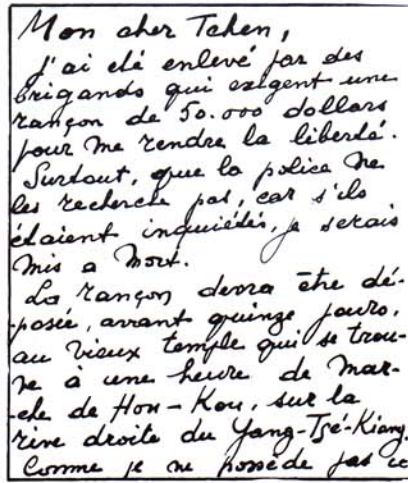 Mon cher Tchen,
J'ai été enlevé par des
brigands qui exigent une
rançon de 50.000 dollars
pour me rendre la liberté.
Surtout, que la police ne
les recherche pas, car s'ils
étaient inquiétés, je serais
mis a mort.
La rançon devra être dé-
-posée, avant quinze jours,
au vieux temple qui se trou-
ve à une heure de mar-
-che de Hou-Kou, sur la
rive droite du Yang-Tsé-Kiang.
Comme je ne possède pas ce